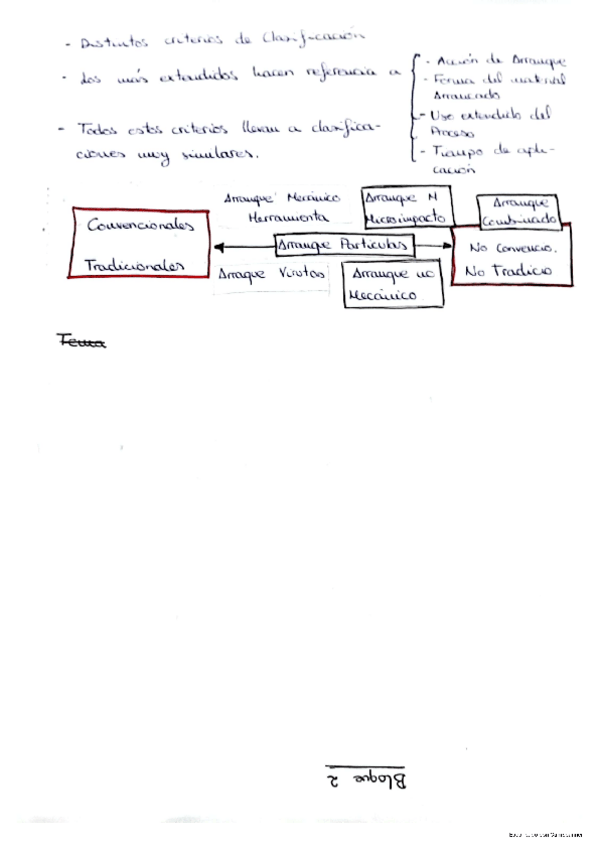 - Distintos criterios de Clasificación
- dos más extendidos hacen referencia a
- Acción de Arranque
- Forma del material
Arrancado
- Uso extendido del
Proceso
- Tiempo de apli-
cación
- Todos estos criterios llevan a clasifica-
ciones muy similares.
Convencionales
Tradicionales
Arranque Mecánico
Herramienta
Arranque M
Microimpacto
Arranque
Combinado
Arranque Partículas
No Convencio.
No Tradicio
Arraque Virutas
Arranque no
Mecánico
Tema
Bloque 2